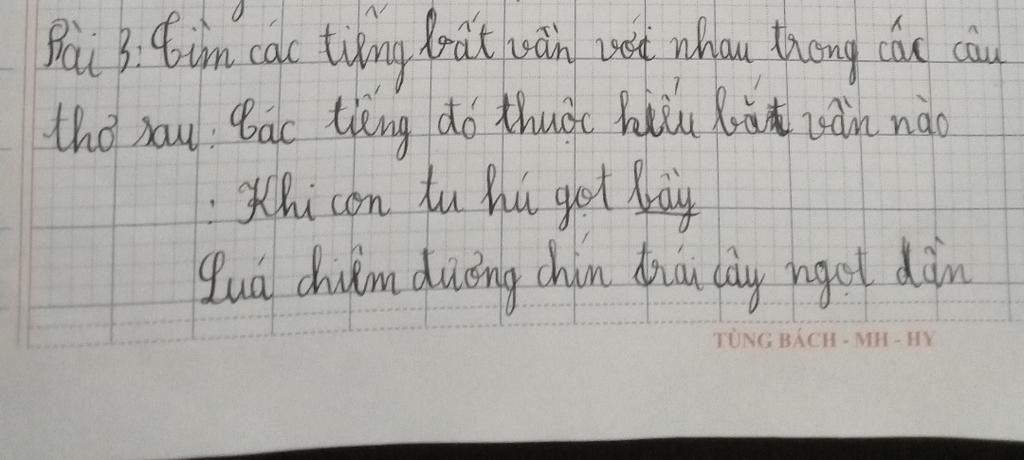 Bài 3: Tìm các tiếng bắt vần với nhau trong các câu
thơ sau. Các tiếng đó thuộc kiểu bắt vần nào
: Khi con tu hú gọt bầy
Quá chiêm đương chín trái cây ngọt dần
TÙNG BÁCH - MH - HY